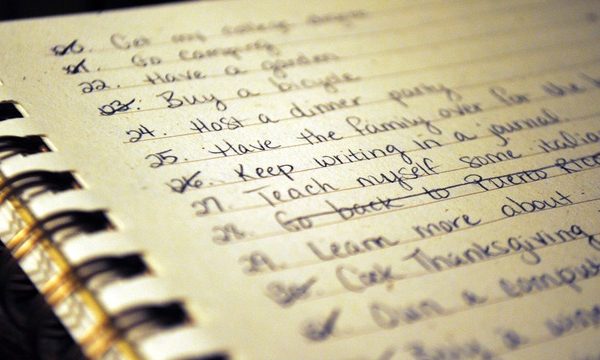 20. Get my college degree
21. Go camping
22. Have a garden
23. Buy a bicycle
24. Host a dinner party
25. Have the family over for the
26. Keep writing in a journal
27. Teach myself some italia
28. Go back to Puerto Rico
29. Learn more about
Cook Thanksgiving
Own a comput